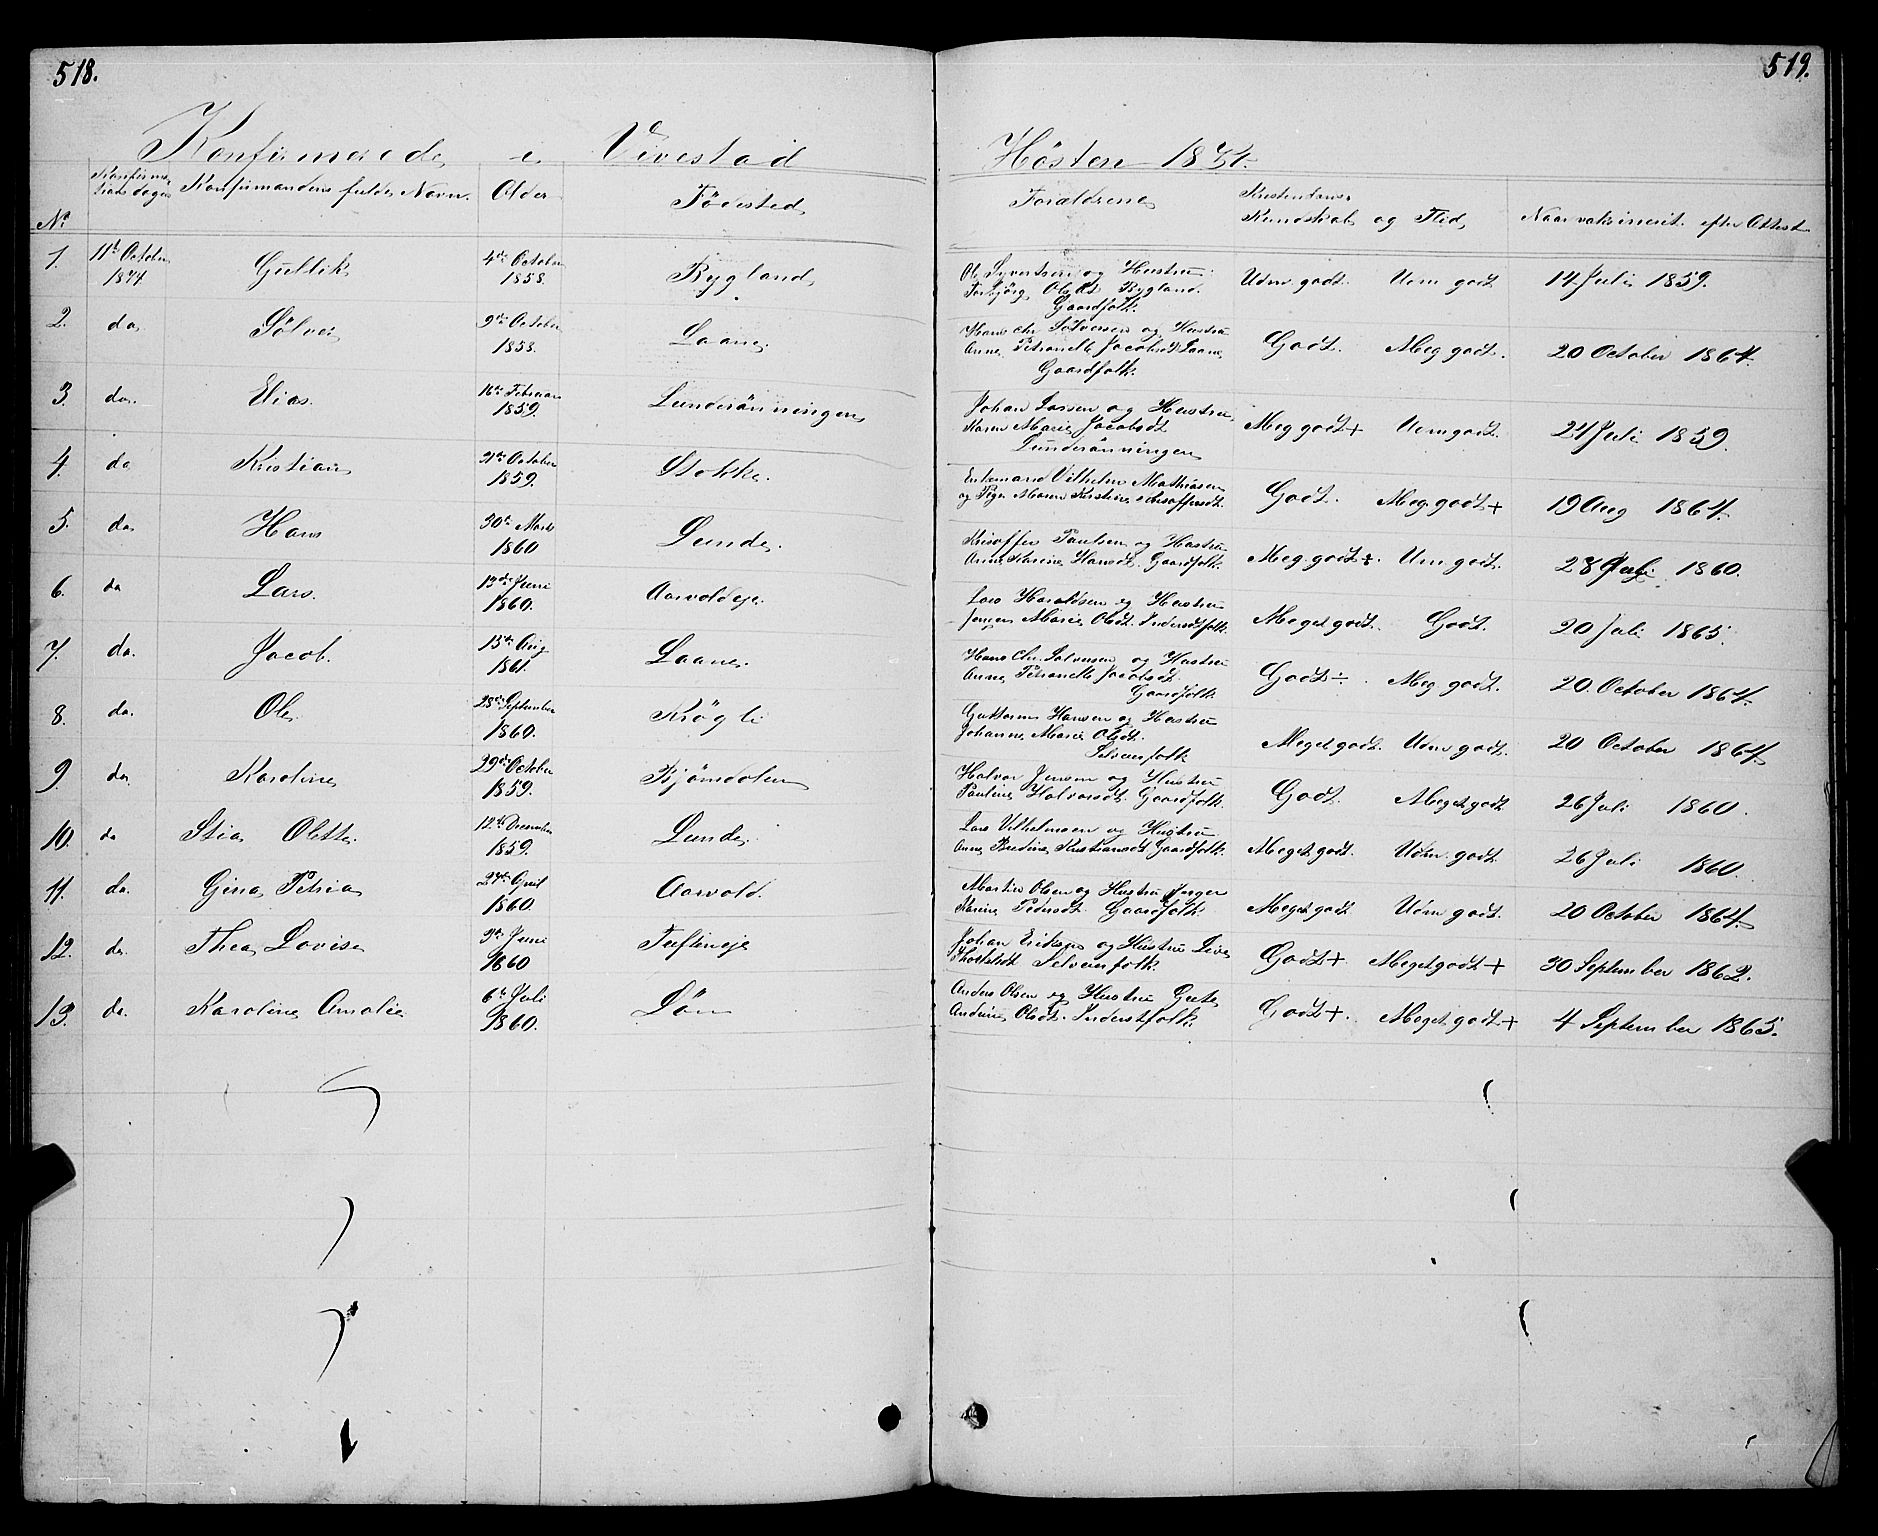 518.
519.
Konfirmerede i Vivestad
Hösten 1874.
No
Konfirma-
tions dagen
Konfirmandens fulde Navn.
Alder
Födested
Forældrene
Kristendoms-
Kundskab og Flid
Naar vaksineret efter Attest
1. 11te October 1874 Gullik 4de October 1858. Bygland
Ole Syvertsen og Hustru
Torbjörg Olsdt Bygland.
Gaardfolk.
Udm godt. Udm godt 14 Juli 1859.
2. do. Sölver 9de October 1858. Laane.
Hans Chr Sölversen og Hustru
Anne Petronelle Jacobsdt Laane
Gaardfolk.
Godt. Meg godt. 20 October 1864.
3. do. Elias. 16de Februar 1859. Lunderönningen
Johan Larsen og Hustru
Karen Marie Jacobsdt
Lunderönningen
Meg godt + Udm godt. 21 Juli 1859.
4. do Kristian 31te October 1859. Stokke.
Enkemand Vilhelm Mathiasen
og Pige Maren Kirstine Kristoffersdt.
Godt. Meg. godt + 19 Aug 1864.
5. do. Hans 30te Marts 1860 Lunde.
Kristoffer Paulsen og Hustru
Anne Karine Hansdt. Gaardfolk.
Meg. godt ÷. Udm godt. 28 Juli 1860.
6. do Lars. 13de Juni 1860. Aarvoldeje.
Lars Haraldsen og Hustru
Jörgen Marie Olsdt. Inderstfolk.
Meget godt. Godt. 20 Juli 1865.
7. do. Jacob. 15de Aug 1861. Laane.
Hans Chr. Sölversen og Hustru
Anne Petronelle Jacobsdt.
Gaardfolk
Godt ÷. Meg godt. 20. October 1864.
8. do. Ole. 28de September 1860. Krögli
Guttorm Hansen og Hustru
Johanne Marie Olsdt.
Selveierfolk
Meget godt. Udm godt. 20 October 1864.
9. do. Karoline 29de October 1859. Bjömdalen
Halvor Jensen og Hustru
Pauline Halvorsdt. Gaardfolk.
Godt. Meget godt 26 Juli 1860.
10. do Stia Olette. 12te December 1859. Lunde.
Lars Vilhelmsen og Hustru
Anne Bredine Kristiansdt Gaardfolk.
Meget godt. Udm godt 26 Juli 1860.
11. do. Gina Petria 24de April 1860. Aarvold.
Martin Olsen og Hustru Inger
Karine Pedersdt. Gaardfolk.
Meget godt Udm godt. 20 October 1864.
12. do. Thea Lovise 3de Juni 1860 Tufteneje
Johan Eriksen og Hustru Live
Selveierfolk.
Godt + Meget godt + 30 September 1862.
13. do. Karoline Amalie 6te Juli 1860. Lön
Anders Olsen og Hustru Grete
Andrine Olsdt. Inderstfolk.
Godt +. Meget godt + 4 September 1865.